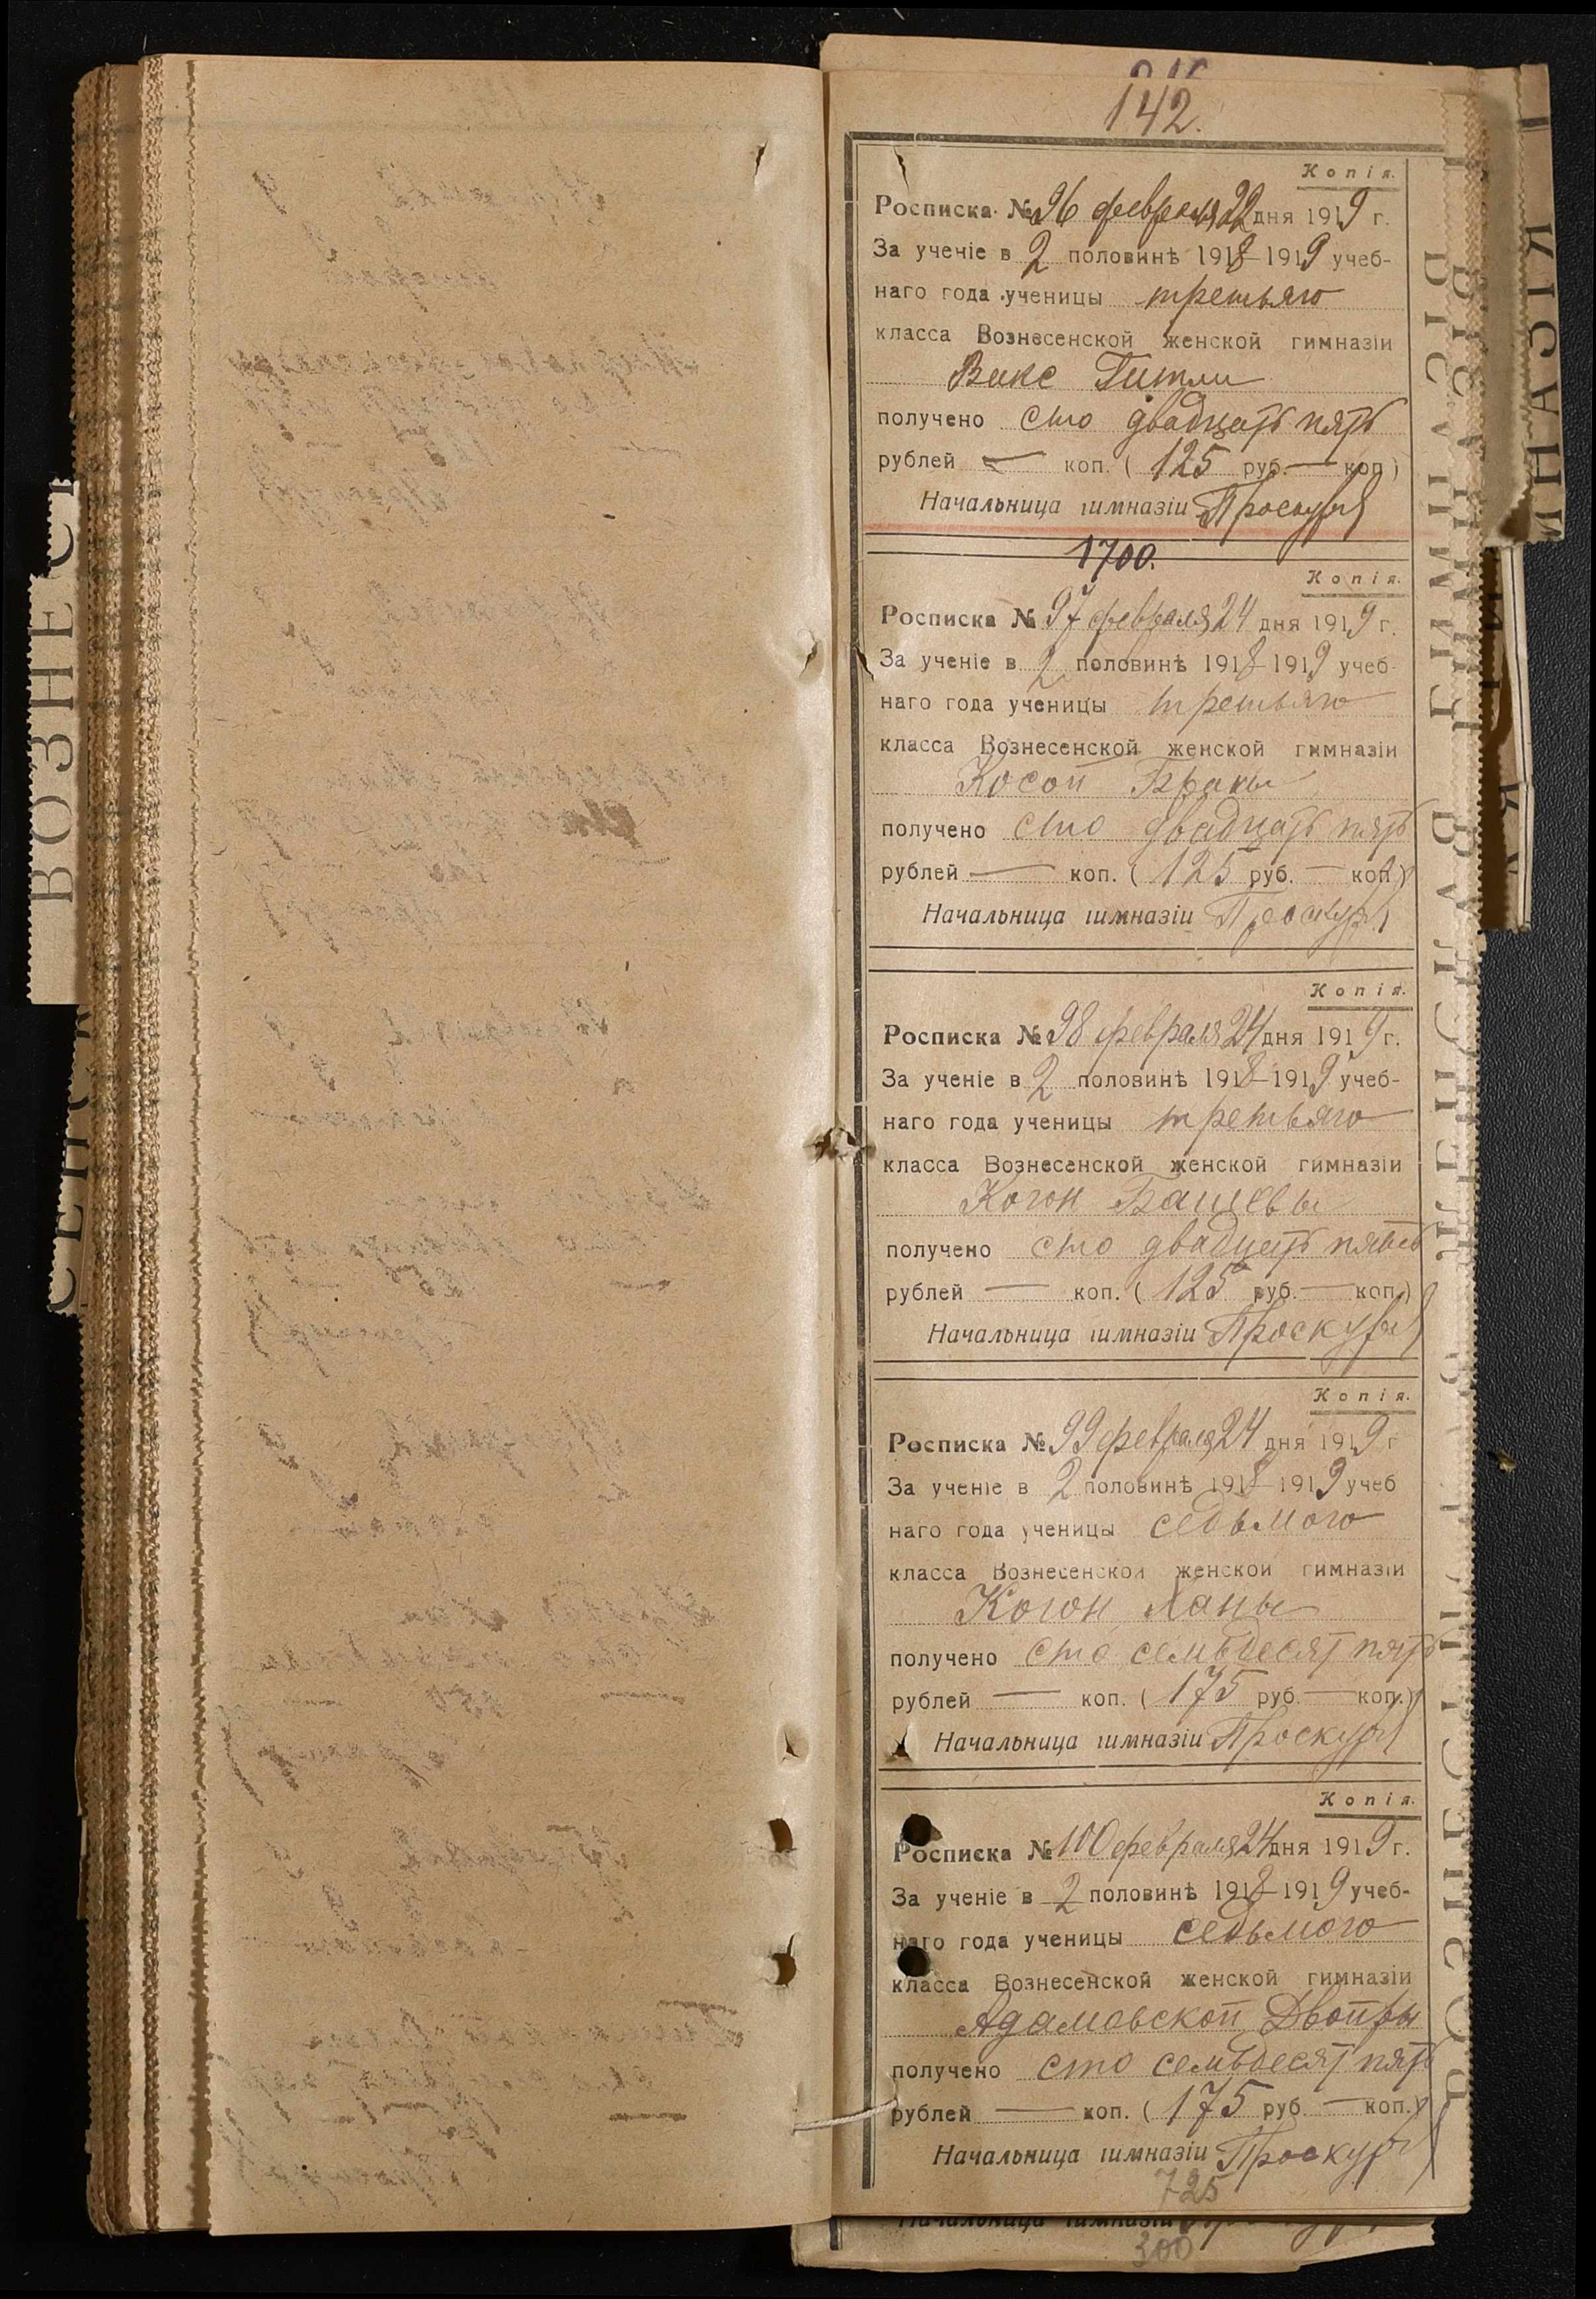 142.
Копія.
Росписка № 96 февраля 22 дня 1919 г.
За ученіе в 2 половинѣ 1918–1919 учеб-
наго года ученицы третьяго
класса Вознесенской женской гимназіи
Викс Гитли
получено сто двадцать пять
рублей — коп. (125 руб. — коп)
Начальница гимназіи Проскура
1700.
Копія.
Росписка № 97 февраля 24 дня 1919 г.
За ученіе в 2 половинѣ 1918–1919 учеб-
наго года ученицы третьяго
класса Вознесенской женской гимназіи
Косой Брахы
получено сто двадцать пять
рублей — коп. (125 руб. — коп)
Начальница гимназіи Проскура
Копія.
Росписка № 98 февраля 24 дня 1919 г.
За ученіе в 2 половинѣ 1918–1919 учеб-
наго года ученицы третьяго
класса Вознесенской женской гимназіи
Когон Башевы
получено сто двадцать пять
рублей — коп. (125 руб. — коп.)
Начальница гимназіи Проскура
Копія.
Росписка № 99 февраля 24 дня 1919 г
За ученіе в 2 половинѣ 1918–1919 учеб
наго года ученицы седьмого
класса Вознесенской женской гимназіи
Когон Ханы
получено сто семьдесят пять
рублей — коп. (175 руб. — коп.)
Начальница гимназіи Проскура
Копія.
Росписка № 100 февраля 24 дня 1919 г.
За ученіе в 2 половинѣ 1918–1919 учеб-
наго года ученицы седьмого
класса Вознесенской женской гимназіи
Адамовской Двойры
получено сто семьдесят пять
рублей — коп. (175 руб. — коп.)
Начальница гимназіи Проскура
725
Начальница гимназіи
300
ВОЗНЕС